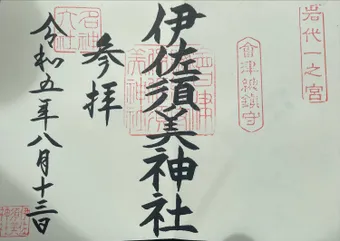 岩代一之宮
會津総鎮守
伊佐須美神社
参拝
名神大社
令和五年八月十三日